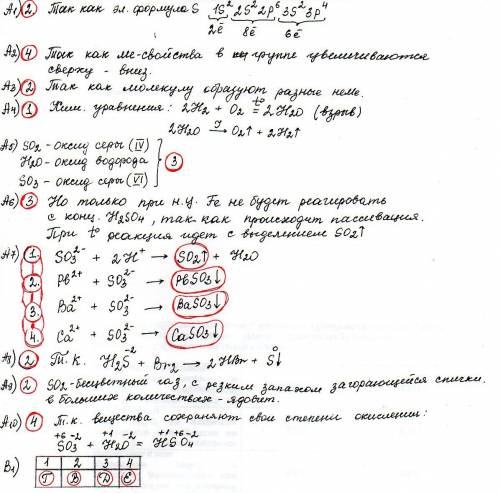 А1) 2 Так как эл. формула S 1S² 2S² 2p⁶ 3S² 3p⁴
2ē 8ē 6ē
А2) 4 Так как ме-свойства в группе увеличиваются
сверху - вниз.
А3) 2 Так как молекулу образуют разные неме.
А4) 1 Хим. уравнения: 2H₂ + O₂ =t° 2H₂O (взрыв)
2H₂O → O₂↑ + 2H₂↑
А5) SO₂ - оксид серы (IV)
H₂O - оксид водорода } 3
SO₃ - оксид серы (VI)
А6) 3 Но только при н.у. Fe не будет реагировать
с конц. H₂SO₄, так как происходит пассивация.
При t° реакция идет с выделением SO₂↑
А7) 1. SO₃²⁻ + 2H⁺ → SO₂↑ + H₂O
2. Pb²⁺ + SO₃²⁻ → PbSO₃↓
3. Ba²⁺ + SO₃²⁻ → BaSO₃↓
4. Ca²⁺ + SO₃²⁻ → CaSO₃↓
А8) 2 Т.к. H₂S⁻² + Br₂ → 2HBr + S⁰↓
А9) 2 SO₂ - бесцветный газ, с резким запахом загорающейся спички.
в больших количествах - ядовит.
А10) 4 Т.к. вещества сохраняют свои степени окисления:
+6 -2 +1 -2 +1 +6 -2
SO₃ + H₂O = H₂SO₄
В1) 1 2 3 4
Г В Д Е